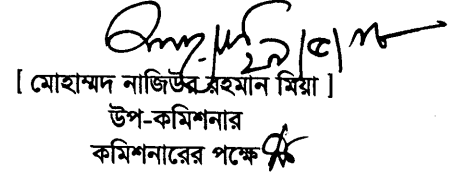 [ মোহাম্মদ নাজিউর রহমান মিয়া ]
উপ-কমিশনার
কমিশনারের পক্ষে